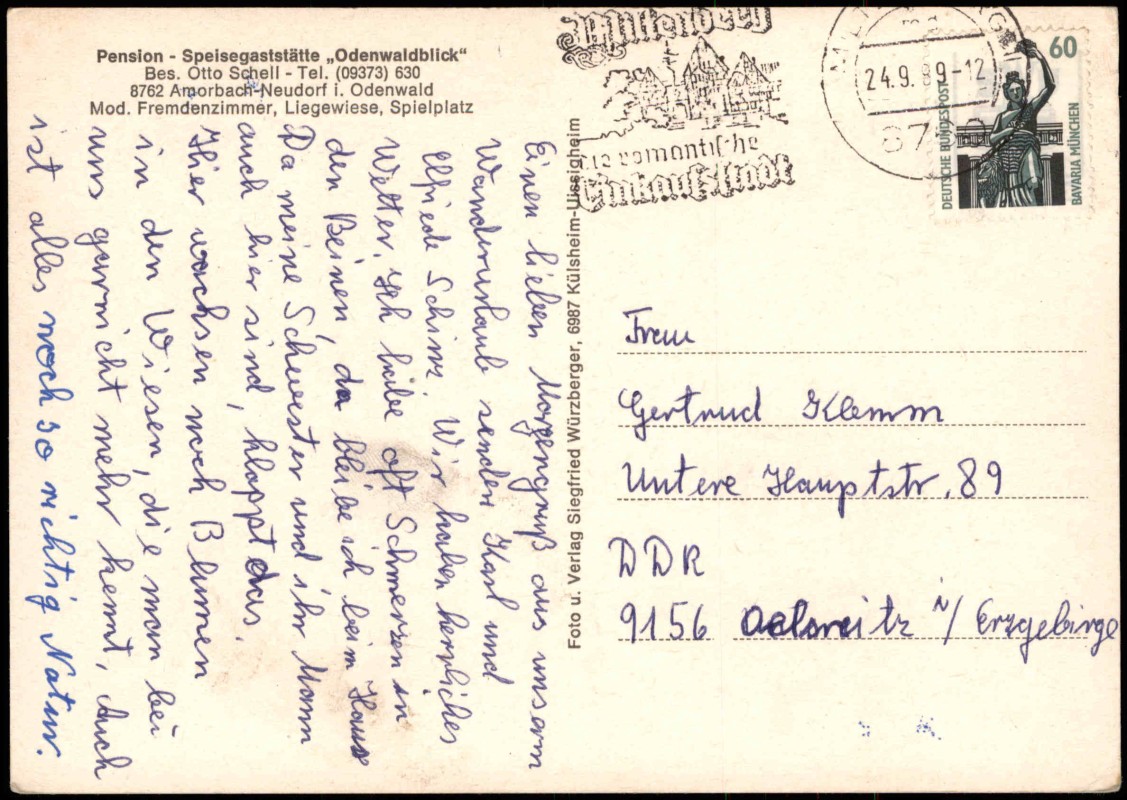 Pension - Speisegaststätte „Odenwaldblick“
Bes. Otto Schell - Tel. (09373) 630
8762 Amorbach-Neudorf i. Odenwald
Mod. Fremdenzimmer, Liegewiese, Spielplatz
Einen lieben Morgengruß aus unserm
Wanderurlaub senden Karl und
Elfriede Schinz. Wir haben herrliches
Wetter. Ich habe oft Schmerzen in
den Beinen, da bleibe ich beim Haus
Da meine Schwester und ihr Mann
auch hier sind, klappt das.
Hier wachsen noch Blumen
in den Wiesen, die man bei
uns garnicht mehr kennt, auch
ist alles noch so richtig Natur.
Foto u. Verlag Siegfried Würzberger, 6987 Külsheim-Uissigheim
Miltenberg
die romantische
Einkaufsstadt
24.9.89-12
87
60
DEUTSCHE BUNDESPOST
BAVARIA MÜNCHEN
Frau
Gertrud Klemm
Untere Hauptstr. 89
DDR
9156 Oelsnitz i/ Erzgebirge